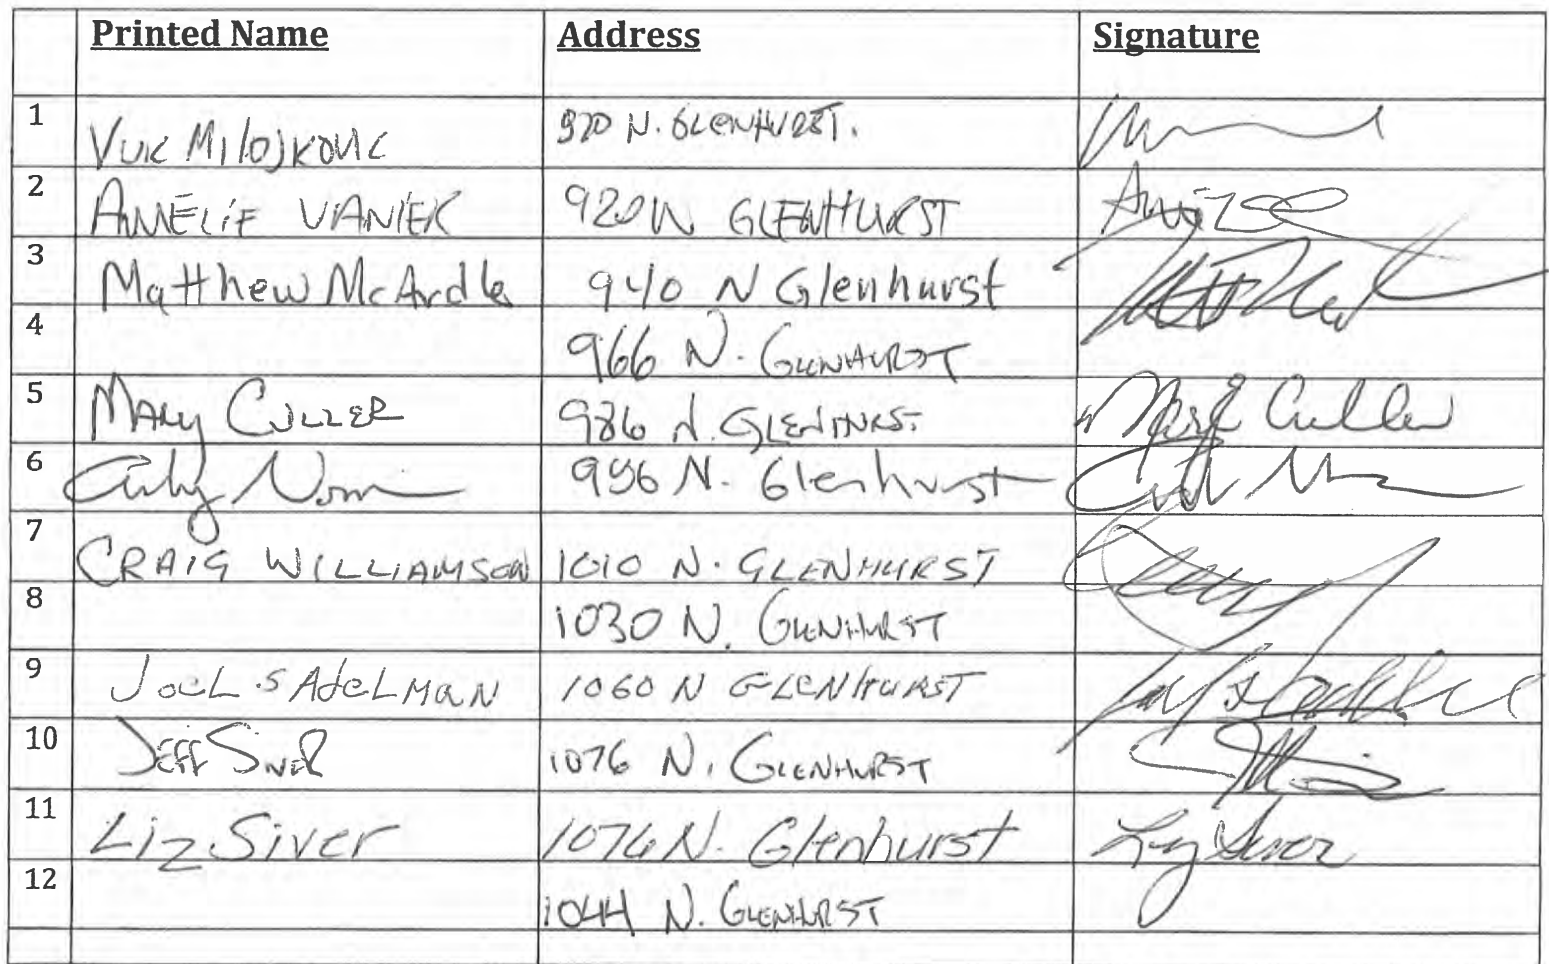 Printed Name Address Signature
1 Vuk Milojkovic 920 N. GLENHURST.
2 AMELIE VANIER 920 N GLENHURST
3 Matthew McArdle 940 N Glenhurst
4 966 N. GLENHURST
5 MARY CULLER 986 N. GLENHURST Mary Culler
6 996 N. Glenhurst
7 CRAIG WILLIAMSON 1010 N. GLENHURST
8 1030 N. GLENHURST
9 JOEL S AdeLMaN 1060 N GLENHURST
10 JEFF SIVER 1076 N. GLENHURST
11 Liz Siver 1076 N. Glenhurst Liz Siver
12 1044 N. GLENHURST